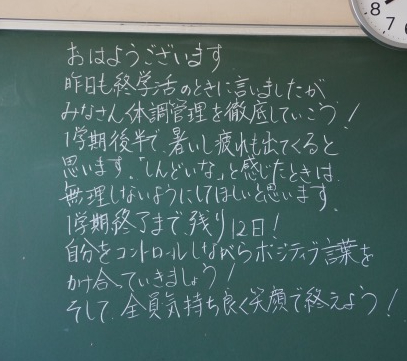 おはようございます
昨日も終学活のときに言いましたが
みなさん体調管理を徹底していこう！
1学期後半で、暑いし疲れも出てくると
思います。「しんどいな」と感じたときは、
無理しないようにしてほしいと思います。
1学期終了まで、残り12日！
自分をコントロールしながらポジティブ言葉を
かけ合っていきましょう！
そして、全員気持ち良く笑顔で終えよう！
8
7
6
5